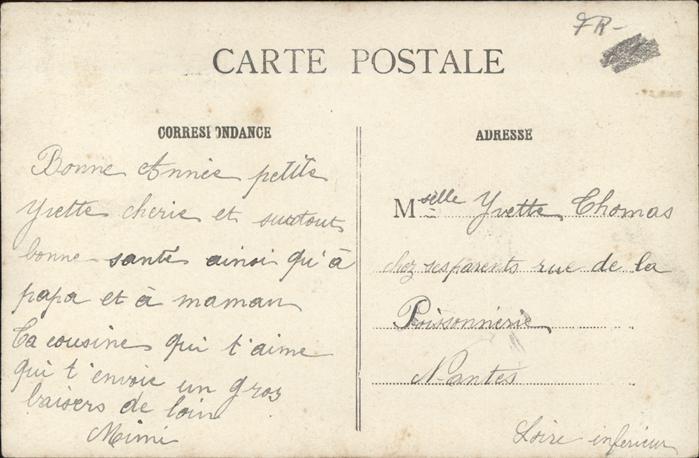 FR-
CARTE POSTALE
CORRESPONDANCE
Bonne Année petite
Yvette cherie et surtout
bonne santé ainsi qu'à
papa et à maman
Ta cousine qui t'aime
qui t'envoie un gros
baisers de loin
Mimi
ADRESSE
Mselle Yvette Thomas
chez ses parents rue de la
Poissonnerie
Nantes
Loire inferieur